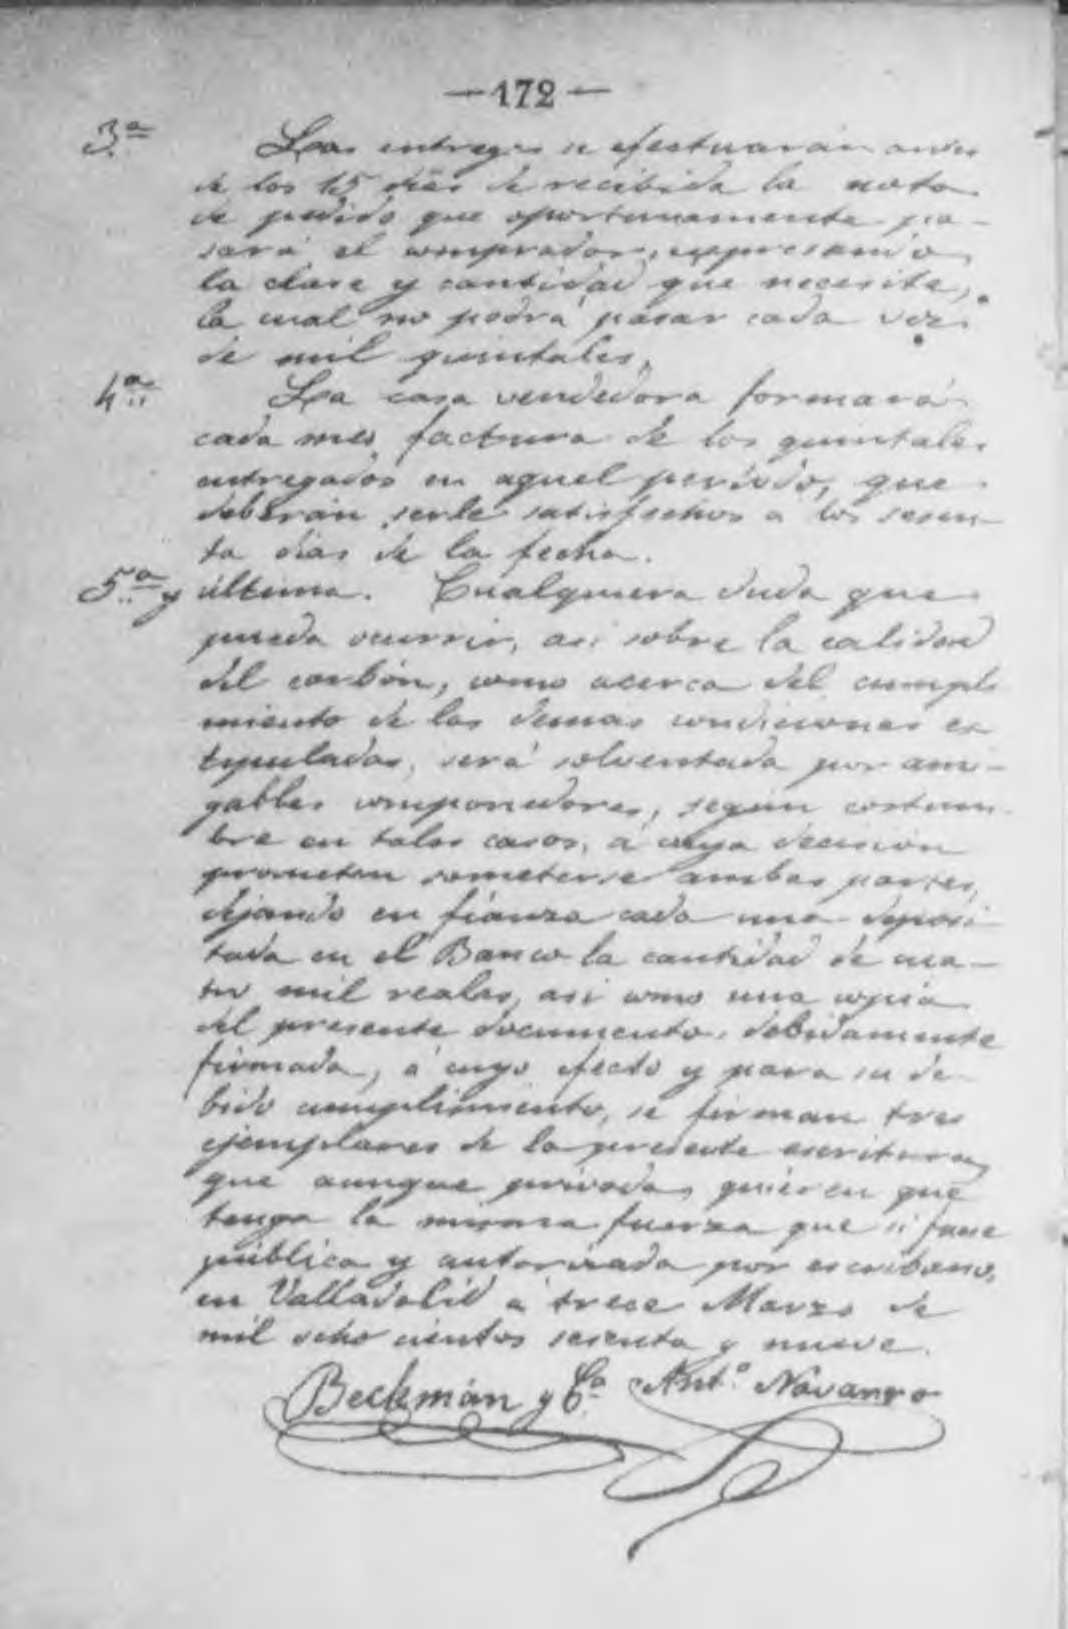 —172—
3.ª Las entregas se efectuarán antes
de los 15 días de recibida la nota
de pedido que oportunamente pa-
sará el comprador, expresando
la clase y cantidad que necesite,
la cual no podrá pasar cada vez
de mil quintales.
4.ª La casa vendedora formará
cada mes factura de los quintales
entregados en aquel período, que
deberán serle satisfechos a los sesen-
ta días de la fecha.
5.ª y última. Cualquiera duda que
pueda ocurrir, así sobre la calidad
del carbón, como acerca del cumpli
miento de las demas condiciones es
tipuladas, será solventada por ami-
gables componedores, según costum-
bre en tales casos, á cuya decisión
prometen someterse ambas partes,
dejando en fianza cada una deposi
tada en el Banco la cantidad de cua-
tro mil reales, así como una copia
del presente documento, debidamente
firmada, á cuyo efecto y para su de-
bido cumplimiento, se firman tres
ejemplares de la presente escritura,
que aunque privada, quieren que
tenga la misma fuerza que si fuese
pública y autorizada por escribano,
en Valladolid á trece Marzo de
mil ocho cientos sesenta y nueve.
Beckmán y C.ª Ant.º Navarro